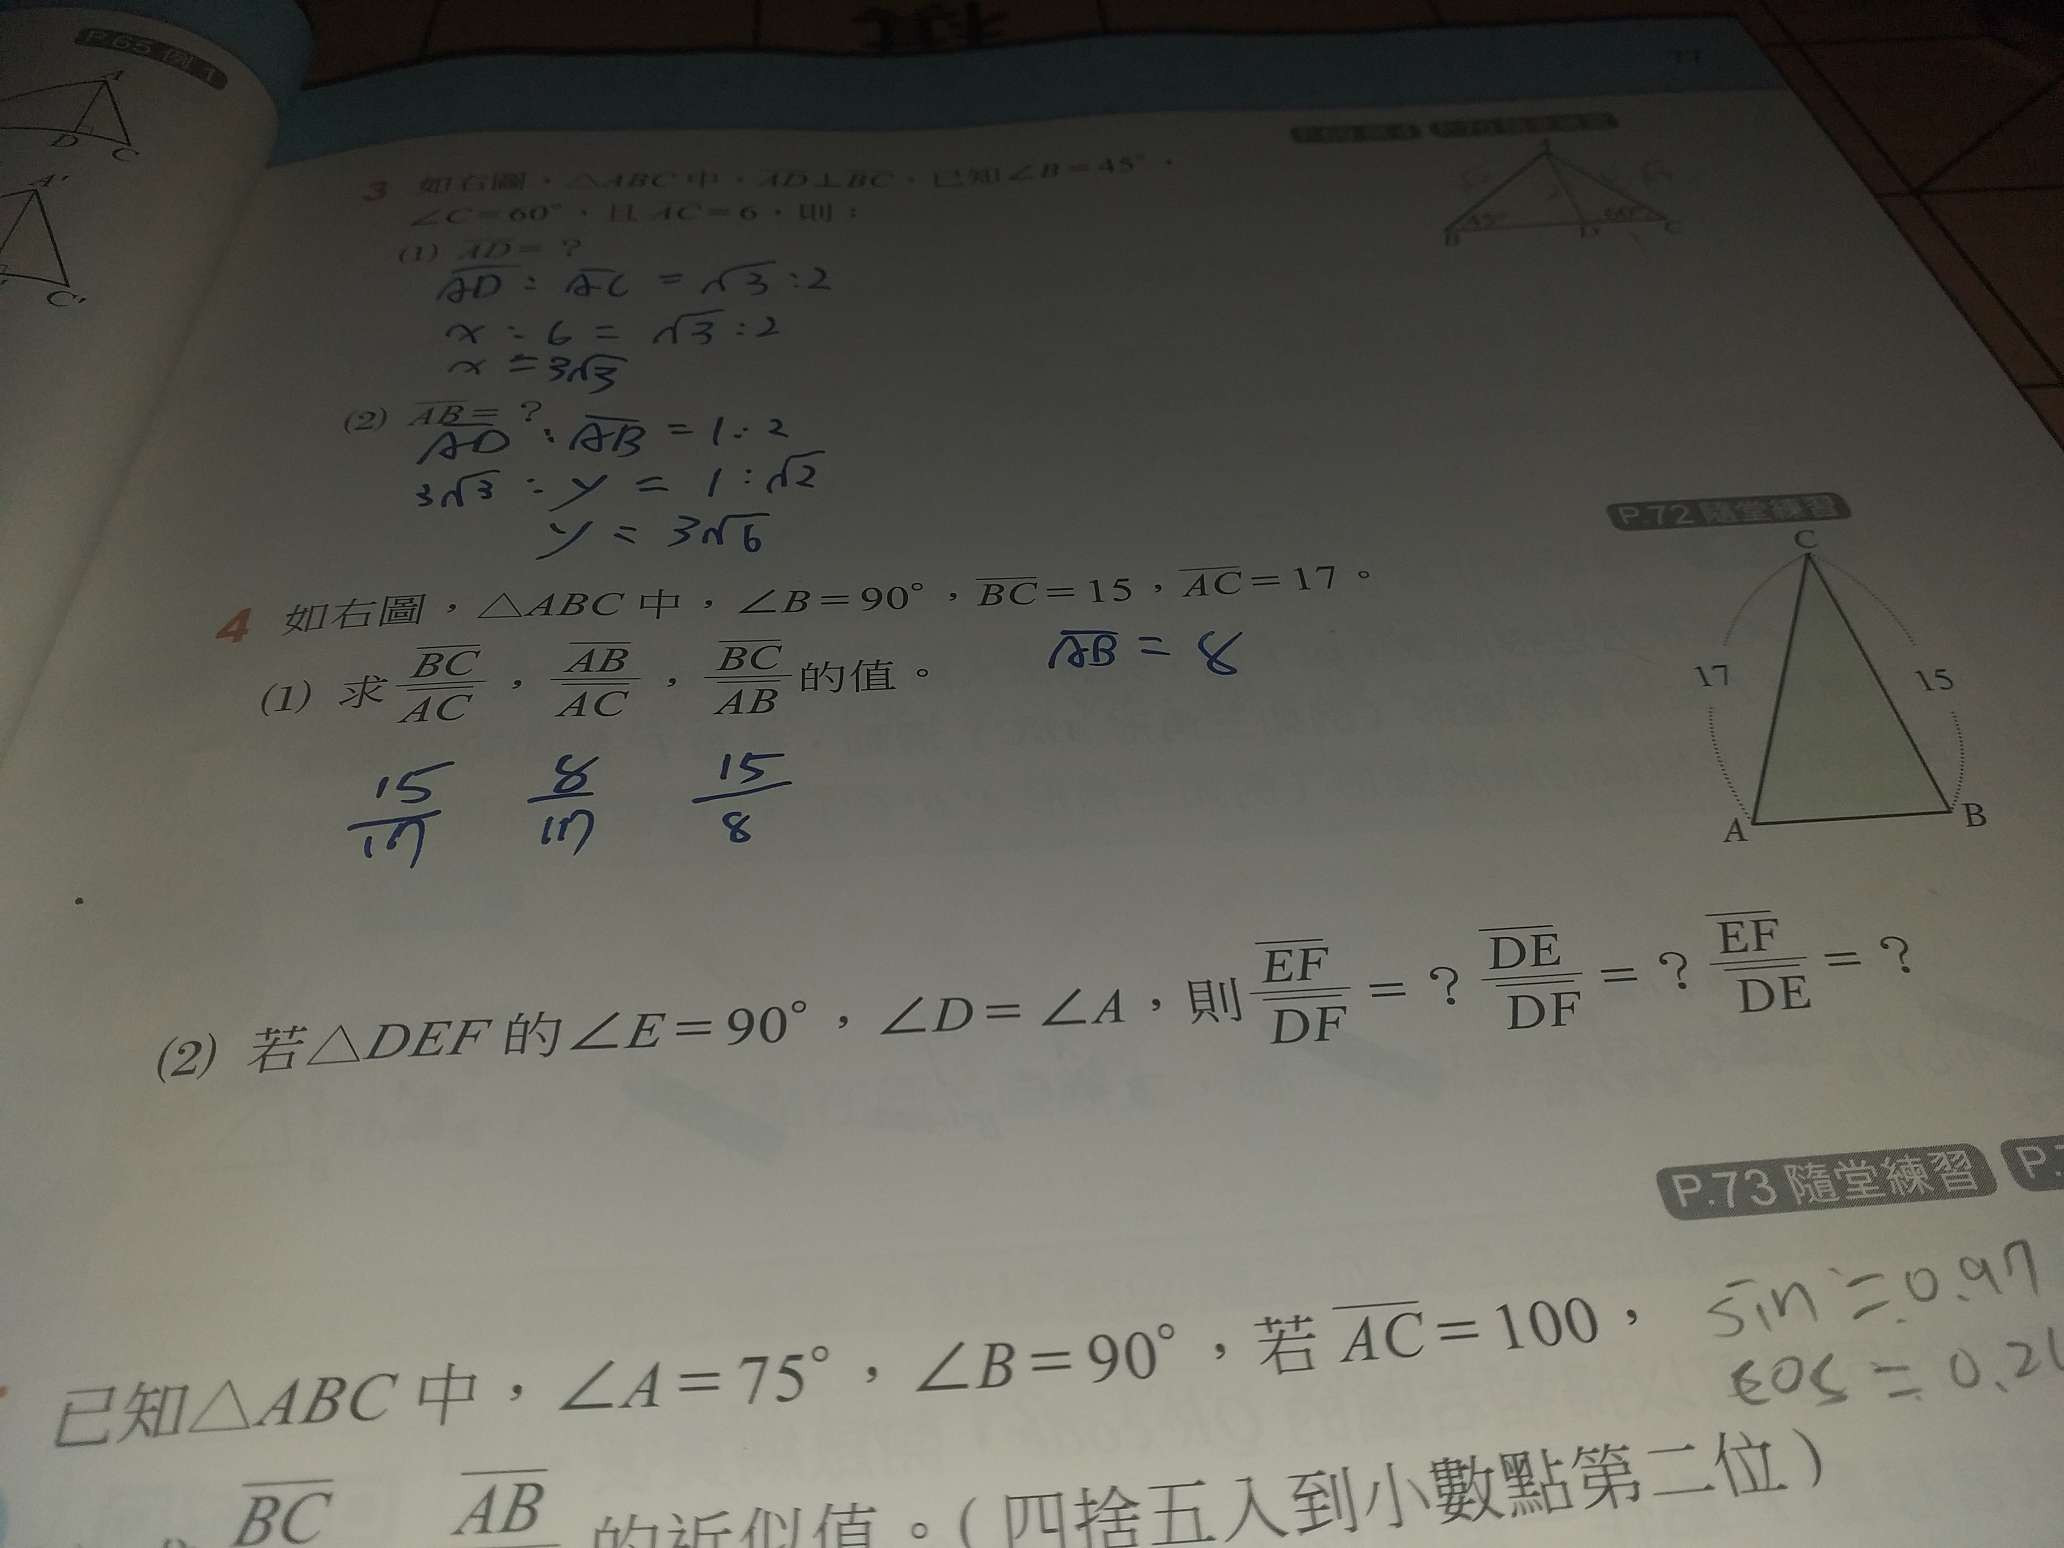 P.65 例 1
A
D
C
A'
C'
3 如右圖，△ABC 中，AD⊥BC，已知∠B＝45°，
∠C＝60°，且 AC＝6，則：
(1) AD＝？
AD : AC = √3 : 2
x : 6 = √3 : 2
x = 3√3
(2) AB＝？
AD : AB = 1 : 2
3√3 : y = 1 : √2
y = 3√6
A
B 45° D 60° C
P.72 隨堂練習
4 如右圖，△ABC 中，∠B＝90°，BC＝15，AC＝17。
AB = 8
(1) 求 BC/AC，AB/AC，BC/AB 的值。
15/17 8/17 15/8
C
17 15
A B
(2) 若△DEF 的∠E＝90°，∠D＝∠A，則 EF/DF＝？DE/DF＝？EF/DE＝？
P.73 隨堂練習 P.
已知△ABC 中，∠A＝75°，∠B＝90°，若 AC＝100，
sin ≒ 0.97
cos ≒ 0.26
BC AB 的近似值。（四捨五入到小數點第二位）